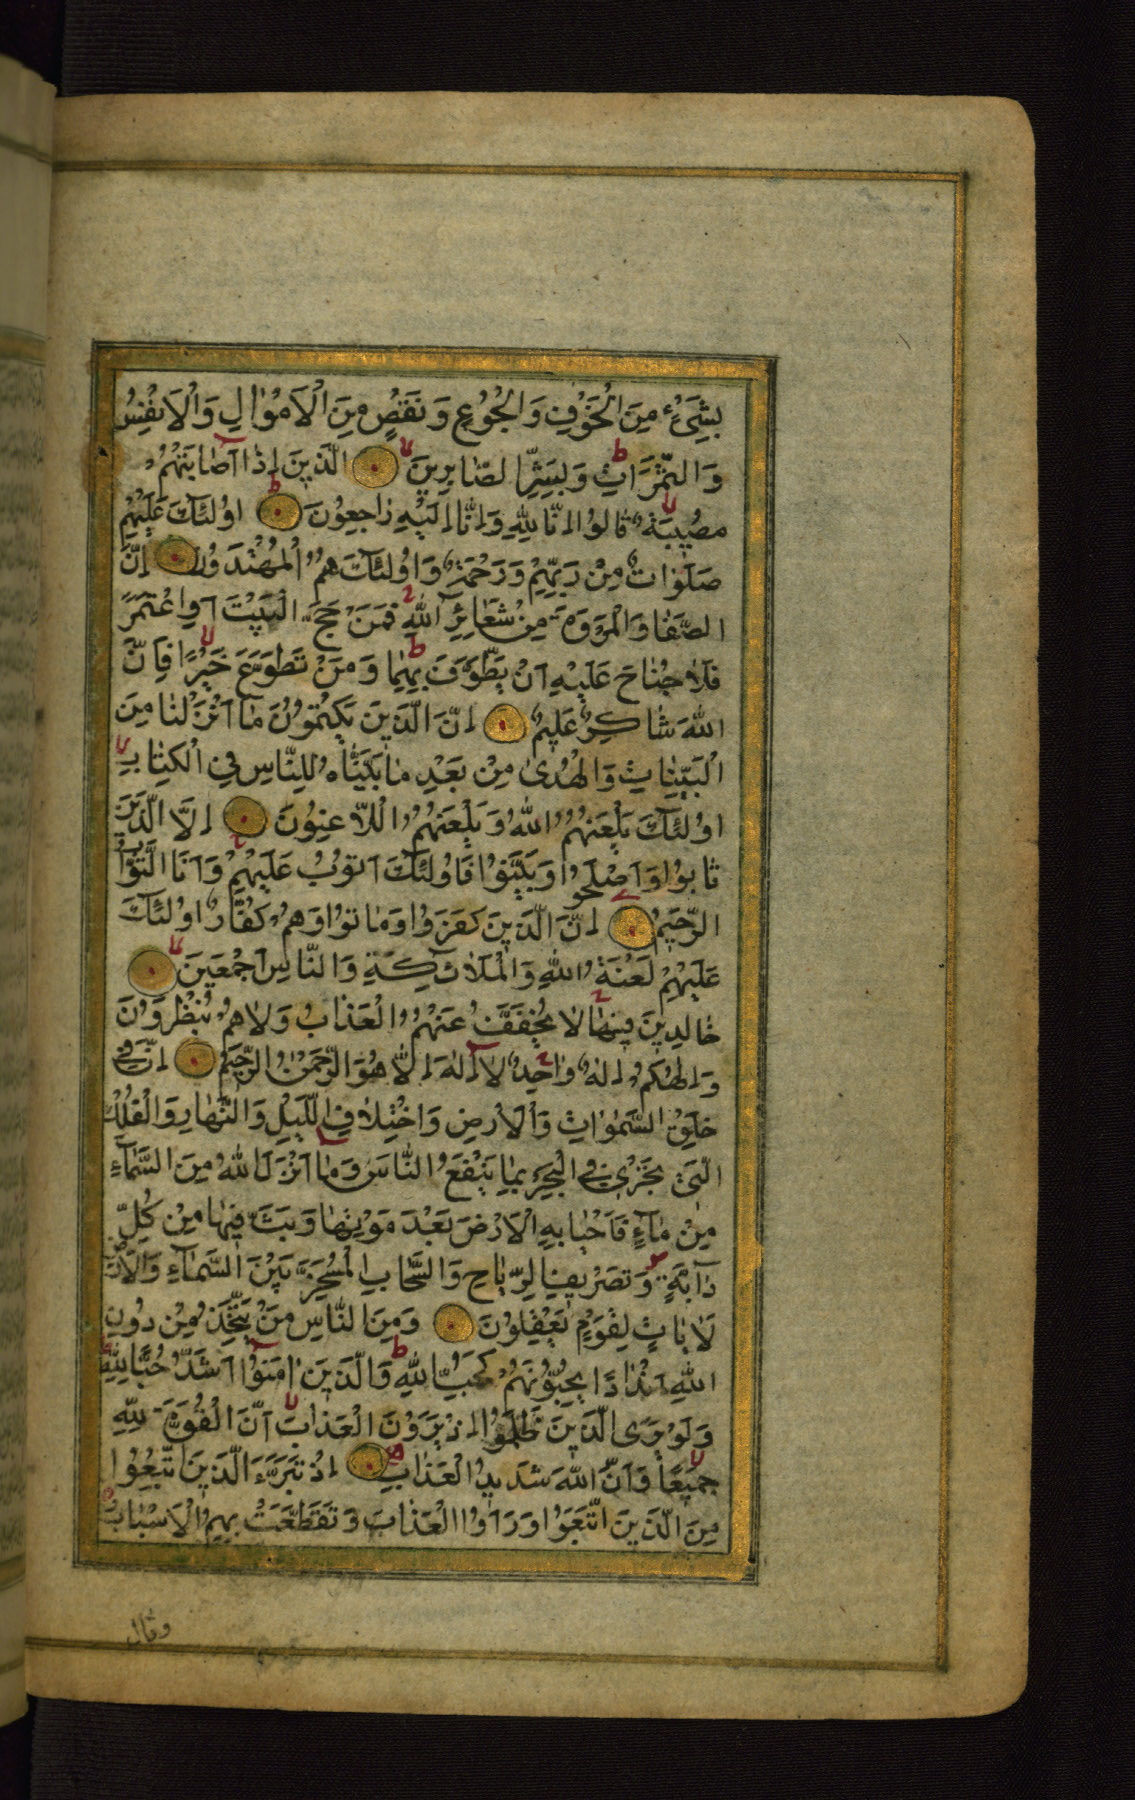 بِشَىْءٍ مِنَ الْخَوْفِ وَالْجُوْعِ وَنَقْصٍ مِنَ الْاَمْوٰالِ وَالْاَنْفُسِ
وَالثَّمَرَاتِ وَبَشِّرِ الصّٰابِرِينَ الَّذِينَ اِذٰا اَصٰابَتْهُمْ
مُصٖيبَةٌ قٰالُوا اِنّٰا لِلّٰهِ وَاِنّٰا اِلَيْهِ رٰاجِعُونَ اُولٰئِكَ عَلَيْهِمْ
صَلَوٰاتٌ مِنْ رَبِّهِمْ وَرَحْمَةٌ وَاُولٰئِكَ هُمُ الْمُهْتَدُونَ اِنَّ
الصَّفٰا وَالْمَرْوَةَ مِنْ شَعٰائِرِ اللّٰهِ فَمَنْ حَجَّ الْبَيْتَ اَوِ اعْتَمَرَ
فَلٰا جُنٰاحَ عَلَيْهِ اَنْ يَطَّوَّفَ بِهِمٰا وَمَنْ تَطَوَّعَ خَيْرًا فَاِنَّ
اللّٰهَ شٰاكِرٌ عَلِيمٌ اِنَّ الَّذِينَ يَكْتُمُونَ مٰا اَنْزَلْنٰا مِنَ
الْبَيِّنٰاتِ وَالْهُدىٰ مِنْ بَعْدِ مٰا بَيَّنّٰاهُ لِلنّٰاسِ فِى الْكِتٰابِ
اُولٰئِكَ يَلْعَنُهُمُ اللّٰهُ وَيَلْعَنُهُمُ اللّٰاعِنُونَ اِلَّا الَّذِينَ
تٰابُوا وَاَصْلَحُوا وَبَيَّنُوا فَاُولٰئِكَ اَتُوبُ عَلَيْهِمْ وَاَنَا التَّوّٰابُ
الرَّحِيمُ اِنَّ الَّذِينَ كَفَرُوا وَمٰاتُوا وَهُمْ كُفّٰارٌ اُولٰئِكَ
عَلَيْهِمْ لَعْنَةُ اللّٰهِ وَالْمَلٰائِكَةِ وَالنّٰاسِ اَجْمَعِينَ
خٰالِدِينَ فِيهٰا لٰا يُخَفَّفُ عَنْهُمُ الْعَذٰابُ وَلٰا هُمْ يُنْظَرُونَ
وَاِلٰهُكُمْ اِلٰهٌ وٰاحِدٌ لٰا اِلٰهَ اِلّٰا هُوَ الرَّحْمٰنُ الرَّحِيمُ اِنَّ فِى
خَلْقِ السَّمٰوٰاتِ وَالْاَرْضِ وَاخْتِلٰافِ اللَّيْلِ وَالنَّهٰارِ وَالْفُلْكِ
الَّتِى تَجْرِى فِى الْبَحْرِ بِمٰا يَنْفَعُ النّٰاسَ وَمٰا اَنْزَلَ اللّٰهُ مِنَ السَّمٰاءِ
مِنْ مٰاءٍ فَاَحْيٰا بِهِ الْاَرْضَ بَعْدَ مَوْتِهٰا وَبَثَّ فِيهٰا مِنْ كُلِّ
دٰابَّةٍ وَتَصْرِيفِ الرِّيٰاحِ وَالسَّحٰابِ الْمُسَخَّرِ بَيْنَ السَّمٰاءِ وَالْاَرْضِ
لَاٰيٰاتٍ لِقَوْمٍ يَعْقِلُونَ وَمِنَ النّٰاسِ مَنْ يَتَّخِذُ مِنْ دُونِ
اللّٰهِ اَنْدٰادًا يُحِبُّونَهُمْ كَحُبِّ اللّٰهِ وَالَّذِينَ اٰمَنُوا اَشَدُّ حُبًّا لِلّٰهِ
وَلَوْ يَرَى الَّذِينَ ظَلَمُوا اِذْ يَرَوْنَ الْعَذٰابَ اَنَّ الْقُوَّةَ لِلّٰهِ
جَمِيعًا وَاَنَّ اللّٰهَ شَدِيدُ الْعَذٰابِ اِذْ تَبَرَّءَ الَّذِينَ اتُّبِعُوا
مِنَ الَّذِينَ اتَّبَعُوا وَرَاَوُا الْعَذٰابَ وَتَقَطَّعَتْ بِهِمُ الْاَسْبٰابُ
وقال